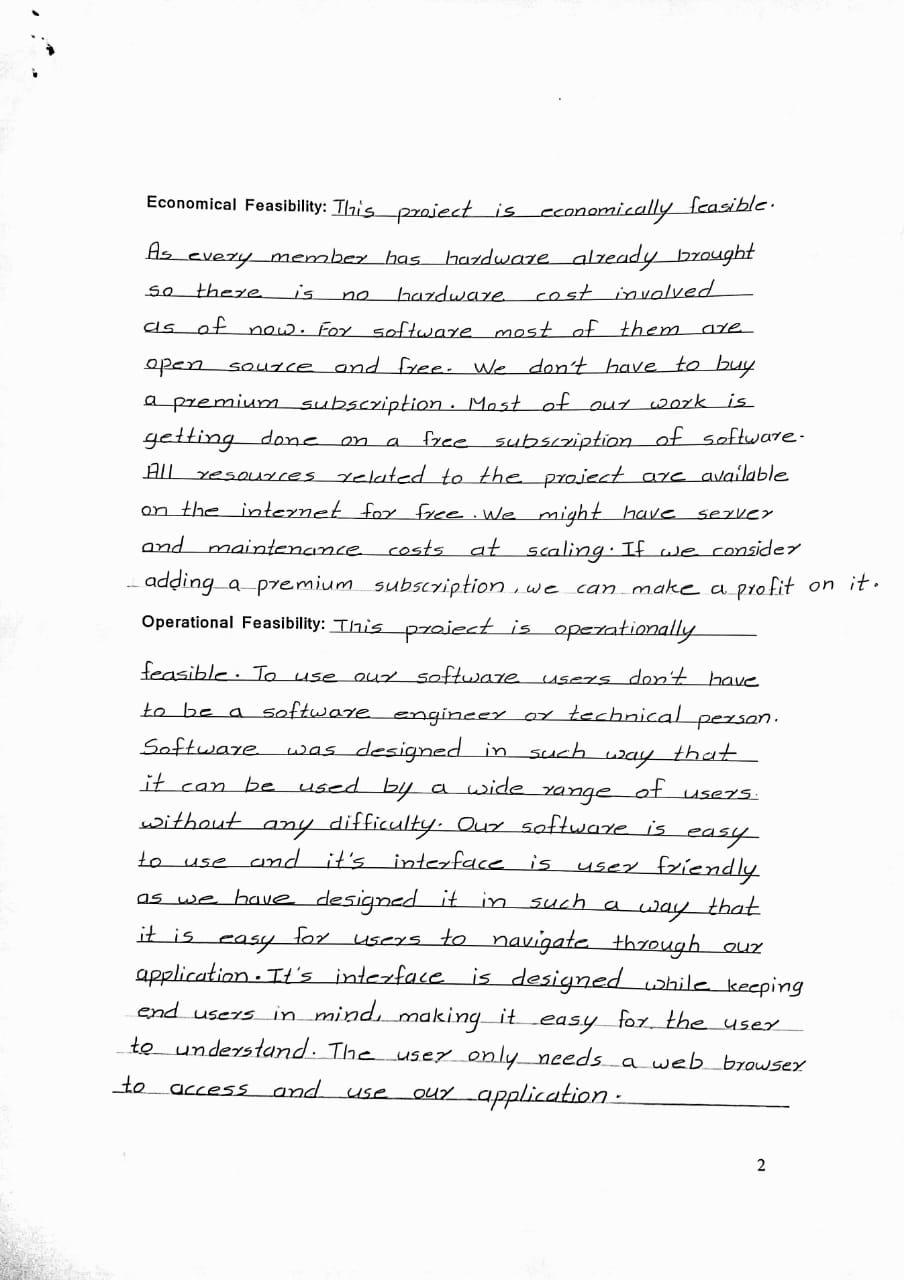 Economical Feasibility: This project is economically feasible.
As every member has hardware already brought
so there is no hardware cost involved
as of now. For software most of them are
open source and free. We don't have to buy
a premium subscription. Most of our work is
getting done on a free subscription of software.
All resources related to the project are available
on the internet for free. We might have server
and maintenance costs at scaling. If we consider
adding a premium subscription, we can make a profit on it.
Operational Feasibility: This project is operationally
feasible. To use our software users don't have
to be a software engineer or technical person.
Software was designed in such way that
it can be used by a wide range of users.
without any difficulty. Our software is easy
to use and it's interface is user friendly
as we have designed it in such a way that
it is easy for users to navigate through our
application. It's interface is designed while keeping
end users in mind, making it easy for the user
to understand. The user only needs a web browser
to access and use our application.
2